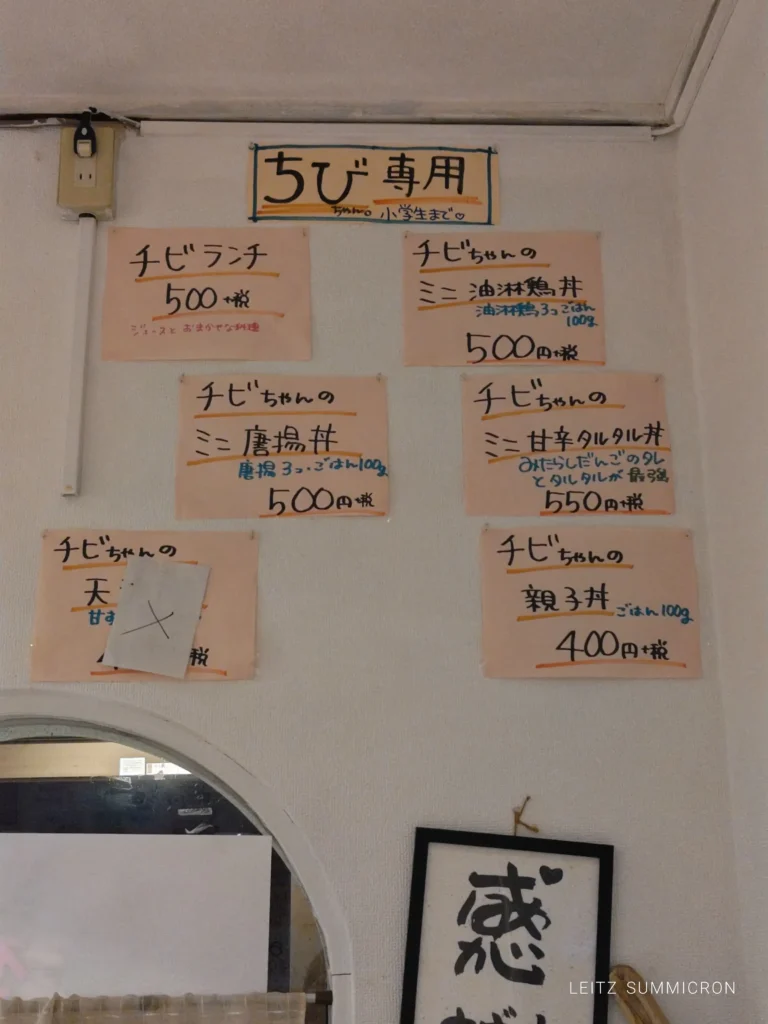 ちび専用
ちゃん。小学生まで♡
チビランチ
500+税
ジュースとおまかせな料理
チビちゃんの
ミニ油淋鶏丼
油淋鶏3つごはん
100g
500円+税
チビちゃんの
ミニ唐揚丼
唐揚3つ・ごはん100g
500円+税
チビちゃんの
ミニ甘辛タルタル丼
みたらしだんごのタレ
とタルタルが最強
550円+税
チビちゃんの
天
甘
×
税
チビちゃんの
親子丼
ごはん100g
400円+税
感
LEITZ SUMMICRON